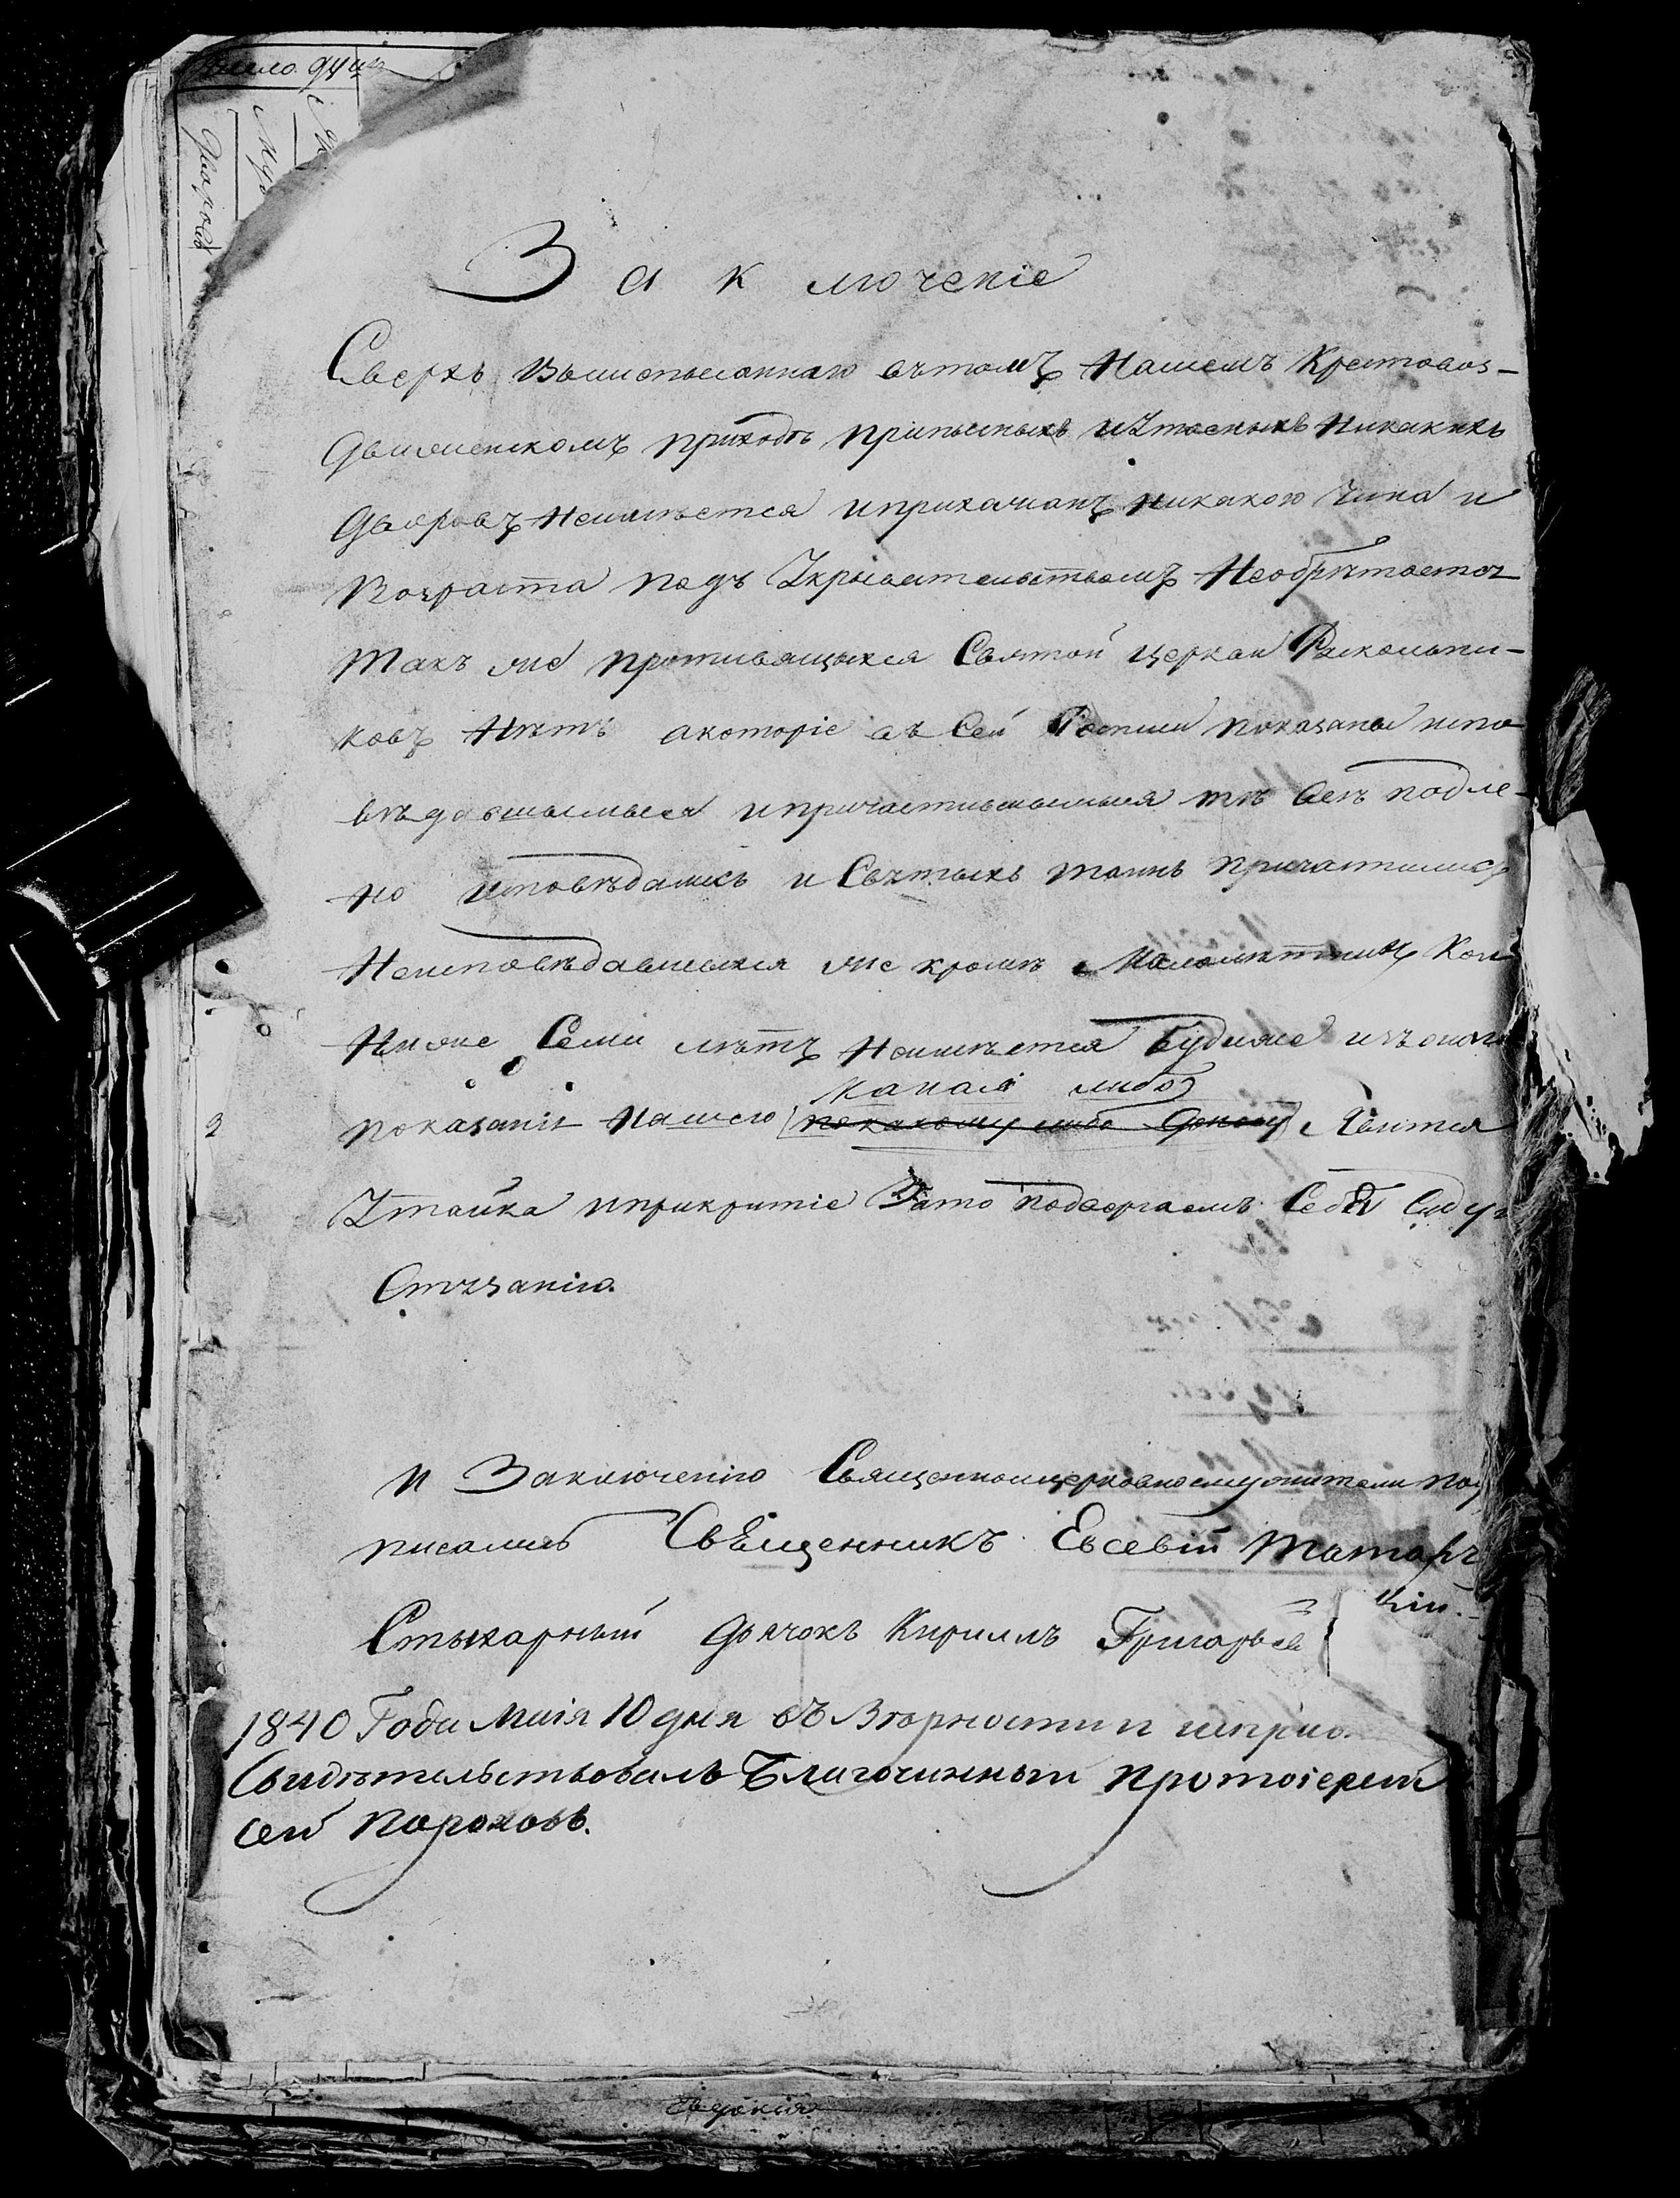 Число душъ
Заключеніе
Сверхъ вышеписаннаго вътомъ Нашемъ Крестовоз-
движенскомъ приходѣ приписныхъ иУтаеныхъ Никакихъ
Дворовъ Неимѣется иприхажанъ никакого Чина и
Возраста подъ Укрывательствомъ Необрѣтается
Такъ же противящыхся Святой церкви Раскольни-
ковъ Нѣтъ акоторіе въ Сей Росписи показаны испо
вѣдавшымыся ипричастившымыся тѣ всѣ подле-
но исповѣдались и Святыхъ таинъ причастились
Неисповѣдавшыхся же кромѣ Малолѣтнихъ Кои
Ниже Семи лѣтъ Неимѣется Будиже изъ оного
Какая либо
показанія Нашего покакому либо доносу Явится
Утайка иприкритіе Зато подвергаемъ Себя Суду и
Стязанію.
И Заключенію Священноицерковнослужители под
писались Священникъ Евсевій Татар
кій.
Стыхарный дьячокъ Кириллъ Григорьев
1840 Года Маія 10 дня въ Вѣрности и исприв
Свидѣтельствовалъ Благочинный протоіерей
сей Пороховъ.